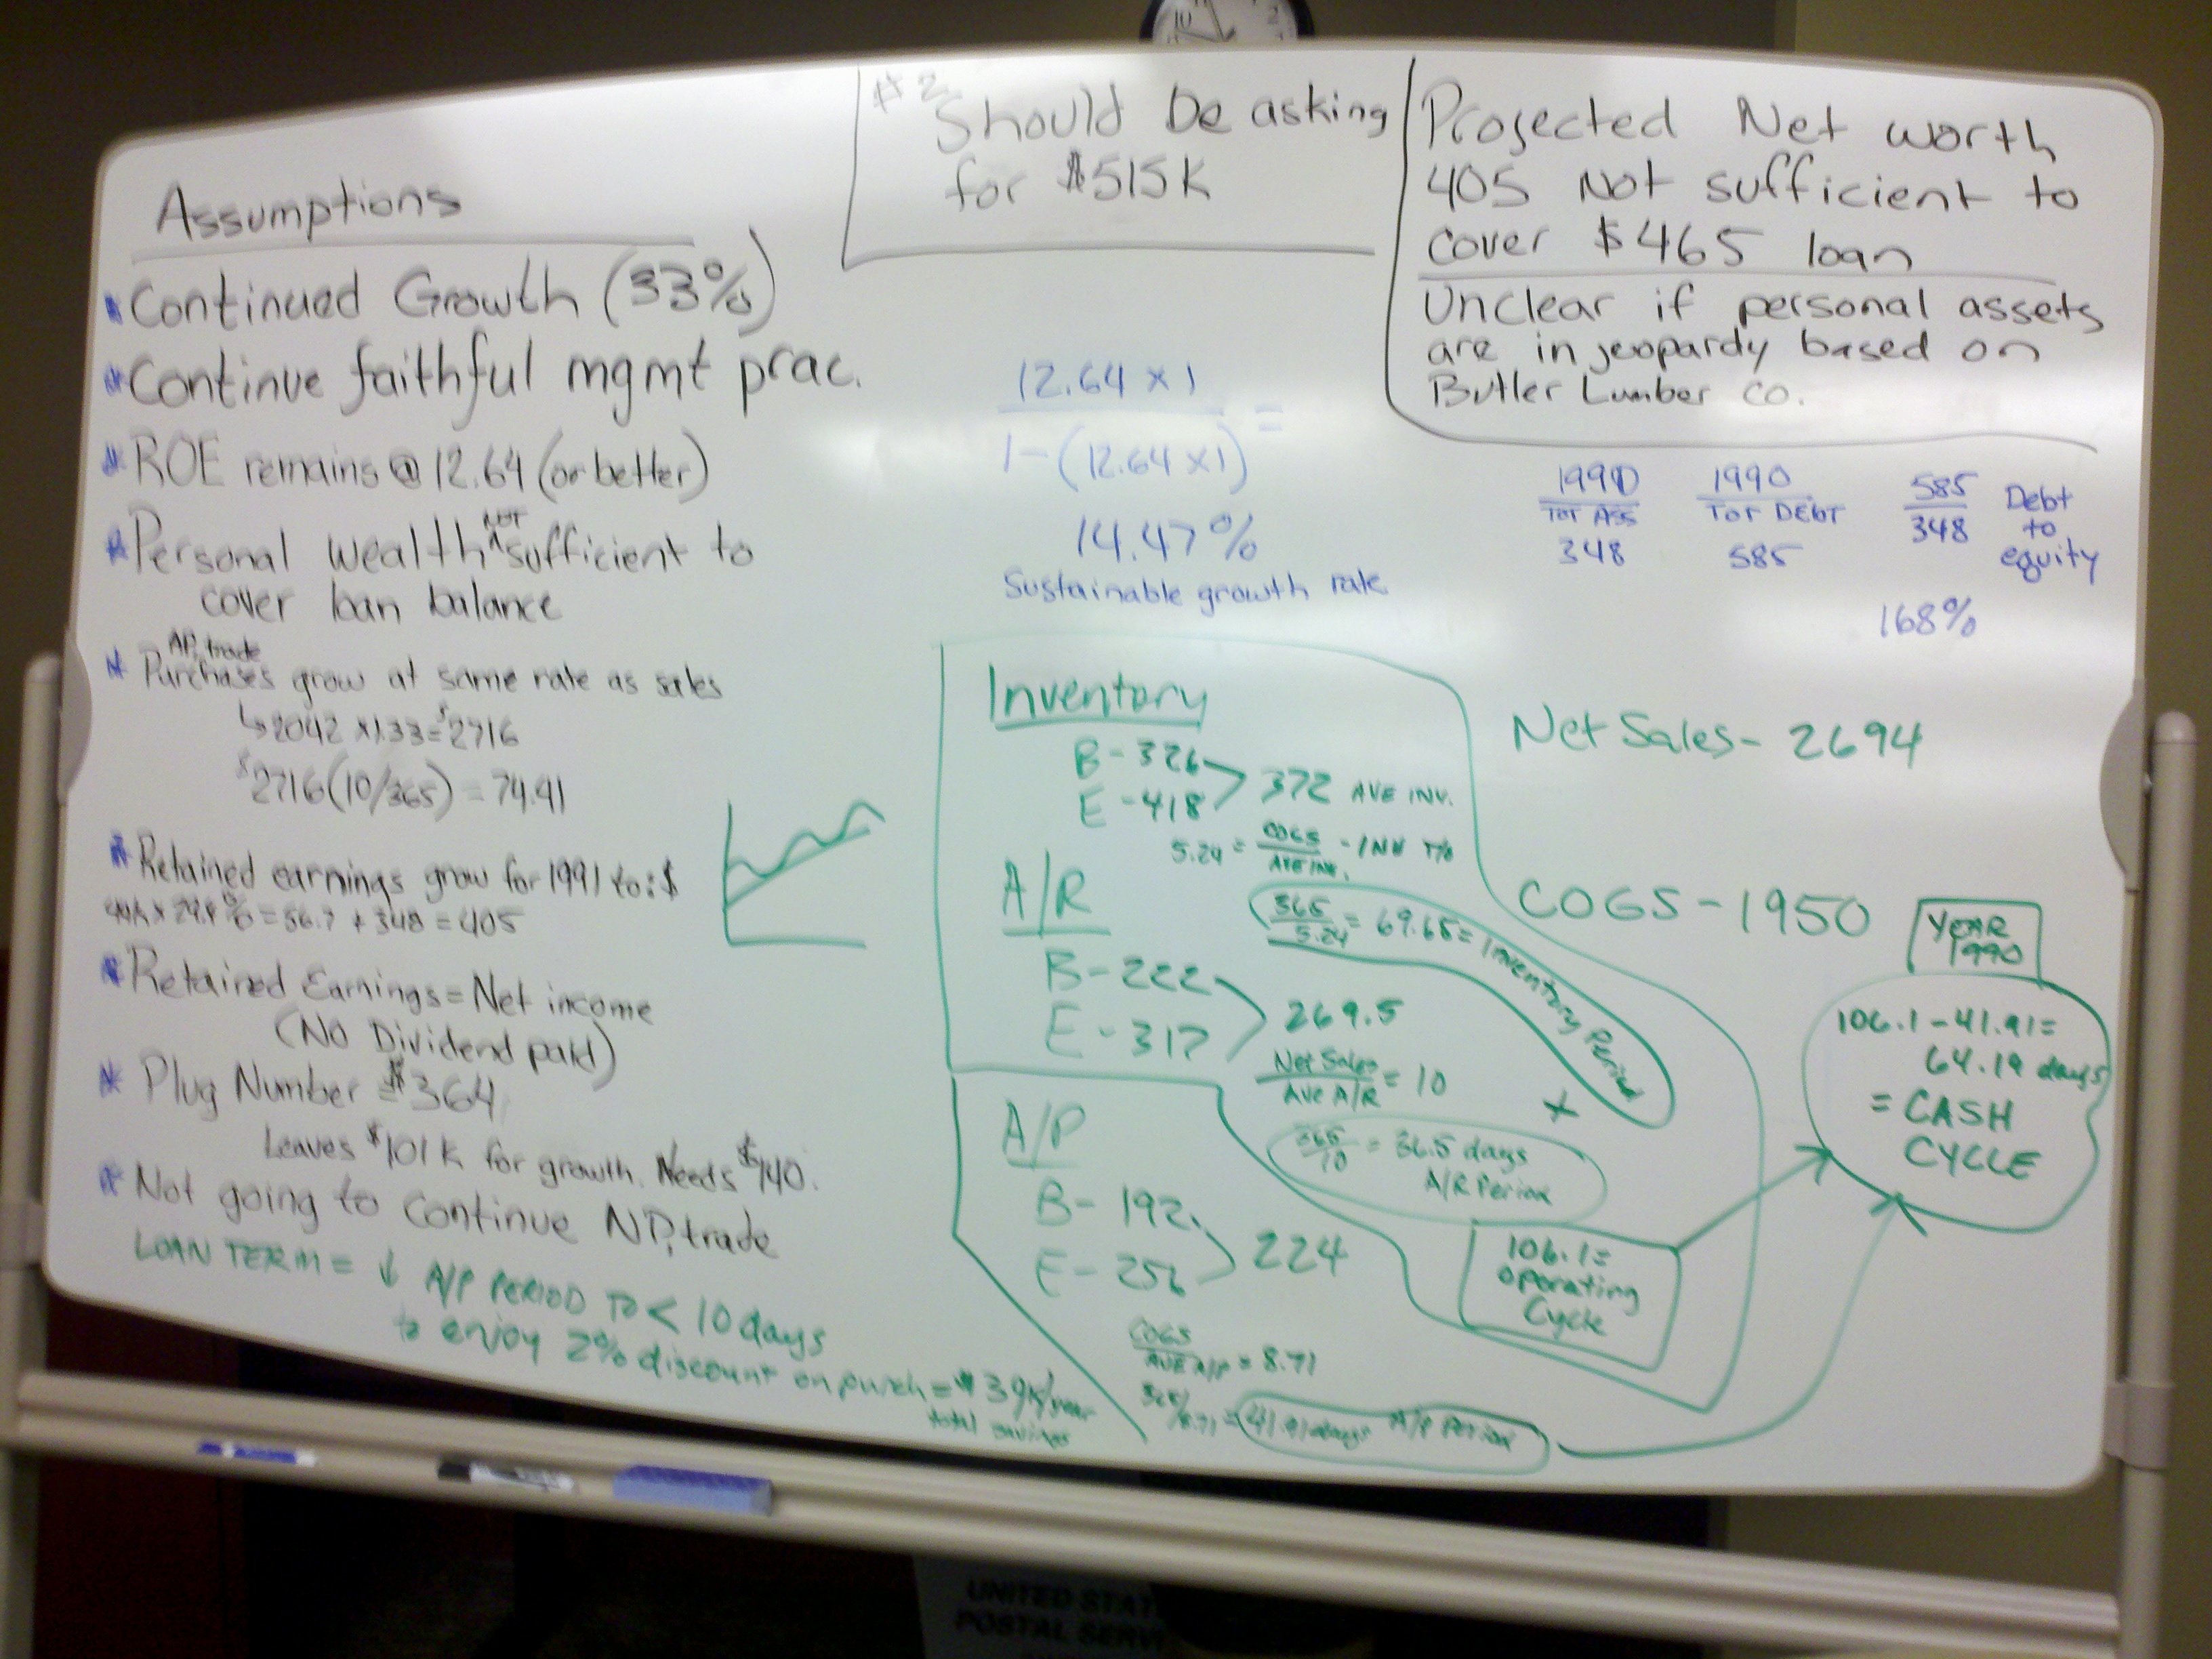 10
2
Assumptions
Continued Growth (33%)
Continue faithful mgmt prac.
ROE remains @ 12.64 (or better)
NOT
Personal wealth ^ sufficient to
cover loan balance
AP, trade
Purchases grow at same rate as sales
↳ 2042 x 1.33 = $2716
$2716 (10/365) = 74.41
Retained earnings grow for 1991 to: $
44k x 29.4% = 56.7 + 348 = 405
Retained Earnings = Net income
(No Dividend paid)
Plug Number = $364
Leaves $101k for growth. Needs $140.
Not going to continue NP, trade
LOAN TERM = ↓ A/P PERIOD TO < 10 days
to enjoy 2% discount on purch = $39k/year
total savings
#2 Should be asking
for $515K
Projected Net worth
405 Not sufficient to
cover $465 loan
Unclear if personal assets
are in jeopardy based on
Butler Lumber Co.
12.64 x 1
1 - (12.64 x 1) =
14.47%
Sustainable growth rate
1990
TOT ASS
348
1990
TOT DEBT
585
585
348
Debt
to
equity
168%
Inventory
B - 326
E - 418
372 AVE INV.
5.24 = COGS
AVE INV. - INV T/O
365
5.24 = 69.65 = Inventory Period
A/R
B - 222
E - 317
269.5
Net Sales
Ave A/R = 10
+
365
10 = 36.5 days
A/R Period
A/P
B - 192
E - 256
224
COGS
AVE A/P = 8.71
365/8.71 = 41.91 days A/P Period
106.1 =
operating
Cycle
Net Sales - 2694
COGS - 1950
YEAR
1990
106.1 - 41.91 =
64.19 days
= CASH
CYCLE
UNITED STAT
POSTAL SERV